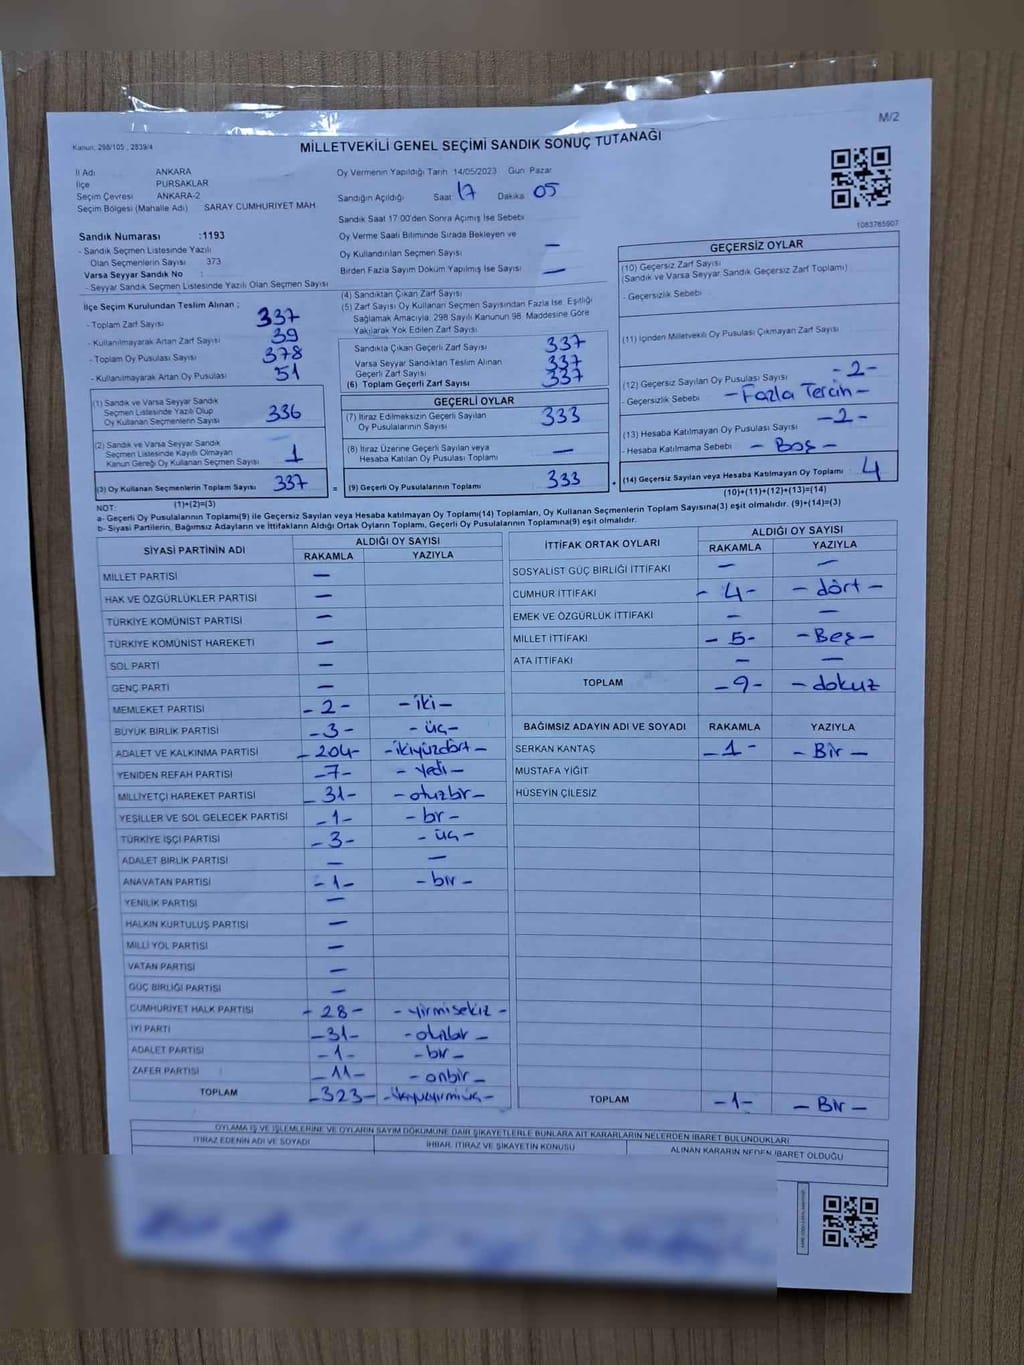 M/2
Kanun: 298/105 ; 2839/4
MİLLETVEKİLİ GENEL SEÇİMİ SANDIK SONUÇ TUTANAĞI
İl Adı ANKARA
İlçe PURSAKLAR
Seçim Çevresi ANKARA-2
Seçim Bölgesi (Mahalle Adı) SARAY CUMHURIYET MAH.
Oy Vermenin Yapıldığı Tarih 14/05/2023 Gün Pazar
Sandığın Açıldığı Saat 17 Dakika 05
Sandık Saat 17:00'den Sonra Açımış İse Sebebi
Oy Verme Saati Bitiminde Sırada Bekleyen ve
Oy Kullandırılan Seçmen Sayısı —
Birden Fazla Sayım Döküm Yapılmış İse Sayısı —
1083765907
Sandık Numarası :1193
- Sandık Seçmen Listesinde Yazılı
Olan Seçmenlerin Sayısı 373
Varsa Seyyar Sandık No :
- Seyyar Sandık Seçmen Listesinde Yazılı Olan Seçmen Sayısı
İlçe Seçim Kurulundan Teslim Alınan ;
- Toplam Zarf Sayısı 337
- Kullanılmayarak Artan Zarf Sayısı 39
- Toplam Oy Pusulası Sayısı 378
- Kullanılmayarak Artan Oy Pusulası 51
(1) Sandık ve Varsa Seyyar Sandık
Seçmen Listesinde Yazılı Olup
Oy Kullanan Seçmenlerin Sayısı 336
(2) Sandık ve Varsa Seyyar Sandık
Seçmen Listesinde Kayıtlı Olmayan
Kanun Gereği Oy Kullanan Seçmen Sayısı 1
(3) Oy Kullanan Seçmenlerin Toplam Sayısı 337
(1)+(2)=(3)
(4) Sandıktan Çıkan Zarf Sayısı
(5) Zarf Sayısı Oy Kullanan Seçmen Sayısından Fazla İse, Eşitliği
Sağlamak Amacıyla, 298 Sayılı Kanunun 98. Maddesine Göre
Yakılarak Yok Edilen Zarf Sayısı
Sandıkta Çıkan Geçerli Zarf Sayısı 337
Varsa Seyyar Sandıktan Teslim Alınan
Geçerli Zarf Sayısı 337
(6) Toplam Geçerli Zarf Sayısı 337
GEÇERLİ OYLAR
(7) İtiraz Edilmeksizin Geçerli Sayılan
Oy Pusulalarının Sayısı 333
(8) İtiraz Üzerine Geçerli Sayılan veya
Hesaba Katılan Oy Pusulası Toplamı —
= (9) Geçerli Oy Pusulalarının Toplamı 333
GEÇERSİZ OYLAR
(10) Geçersiz Zarf Sayısı
(Sandık ve Varsa Seyyar Sandık Geçersiz Zarf Toplamı)
- Geçersizlik Sebebi
(11) İçinden Milletvekili Oy Pusulası Çıkmayan Zarf Sayısı
(12) Geçersiz Sayılan Oy Pusulası Sayısı -2-
- Geçersizlik Sebebi -Fazla Tercih-
(13) Hesaba Katılmayan Oy Pusulası Sayısı -2-
- Hesaba Katılmama Sebebi - Boş -
(14) Geçersiz Sayılan veya Hesaba Katılmayan Oy Toplamı 4
(10)+(11)+(12)+(13)=(14)
NOT:
a- Geçerli Oy Pusulalarının Toplamı(9) ile Geçersiz Sayılan veya Hesaba katılmayan Oy Toplamı(14) Toplamları, Oy Kullanan Seçmenlerin Toplam Sayısına(3) eşit olmalıdır. (9)+(14)=(3)
b- Siyasi Partilerin, Bağımsız Adayların ve İttifakların Aldığı Ortak Oyların Toplamı, Geçerli Oy Pusulalarının Toplamına(9) eşit olmalıdır.
SİYASİ PARTİNİN ADI ALDIĞI OY SAYISI
RAKAMLA YAZIYLA
MİLLET PARTİSİ —
HAK VE ÖZGÜRLÜKLER PARTİSİ —
TÜRKİYE KOMÜNİST PARTİSİ —
TÜRKİYE KOMÜNİST HAREKETİ —
SOL PARTİ —
GENÇ PARTİ —
MEMLEKET PARTİSİ -2- -iki-
BÜYÜK BİRLİK PARTİSİ -3- -üç-
ADALET VE KALKINMA PARTİSİ -204- -ikiyüzdört-
YENİDEN REFAH PARTİSİ -7- -Yedi-
MİLLİYETÇİ HAREKET PARTİSİ -31- -otuzbir-
YEŞİLLER VE SOL GELECEK PARTİSİ -1- -bir-
TÜRKİYE İŞÇİ PARTİSİ -3- -üç-
ADALET BİRLİK PARTİSİ — —
ANAVATAN PARTİSİ -1- -bir-
YENİLİK PARTİSİ —
HALKIN KURTULUŞ PARTİSİ —
MİLLİ YOL PARTİSİ —
VATAN PARTİSİ —
GÜÇ BİRLİĞİ PARTİSİ —
CUMHURİYET HALK PARTİSİ -28- -yirmisekiz-
İYİ PARTİ -31- -otuzbir-
ADALET PARTİSİ -1- -bir-
ZAFER PARTİSİ -11- -onbir-
TOPLAM -323-
İTTİFAK ORTAK OYLARI ALDIĞI OY SAYISI
RAKAMLA YAZIYLA
SOSYALİST GÜÇ BİRLİĞİ İTTİFAKI — —
CUMHUR İTTİFAKI -4- -dört-
EMEK VE ÖZGÜRLÜK İTTİFAKI — —
MİLLET İTTİFAKI -5- -Beş-
ATA İTTİFAKI — —
TOPLAM -9- -dokuz
BAĞIMSIZ ADAYIN ADI VE SOYADI RAKAMLA YAZIYLA
SERKAN KANTAŞ -1- -Bir-
MUSTAFA YİĞİT
HÜSEYİN ÇİLESİZ
TOPLAM -1- -Bir-
OYLAMA İŞ VE İŞLEMLERİNE VE OYLARIN SAYIM DÖKÜMÜNE DAİR ŞİKAYETLERLE BUNLARA AİT KARARLARIN NELERDEN İBARET BULUNDUKLARI
İTİRAZ EDENİN ADI VE SOYADI İHBAR, İTİRAZ VE ŞİKAYETİN KONUSU ALINAN KARARIN NEDEN İBARET OLDUĞU